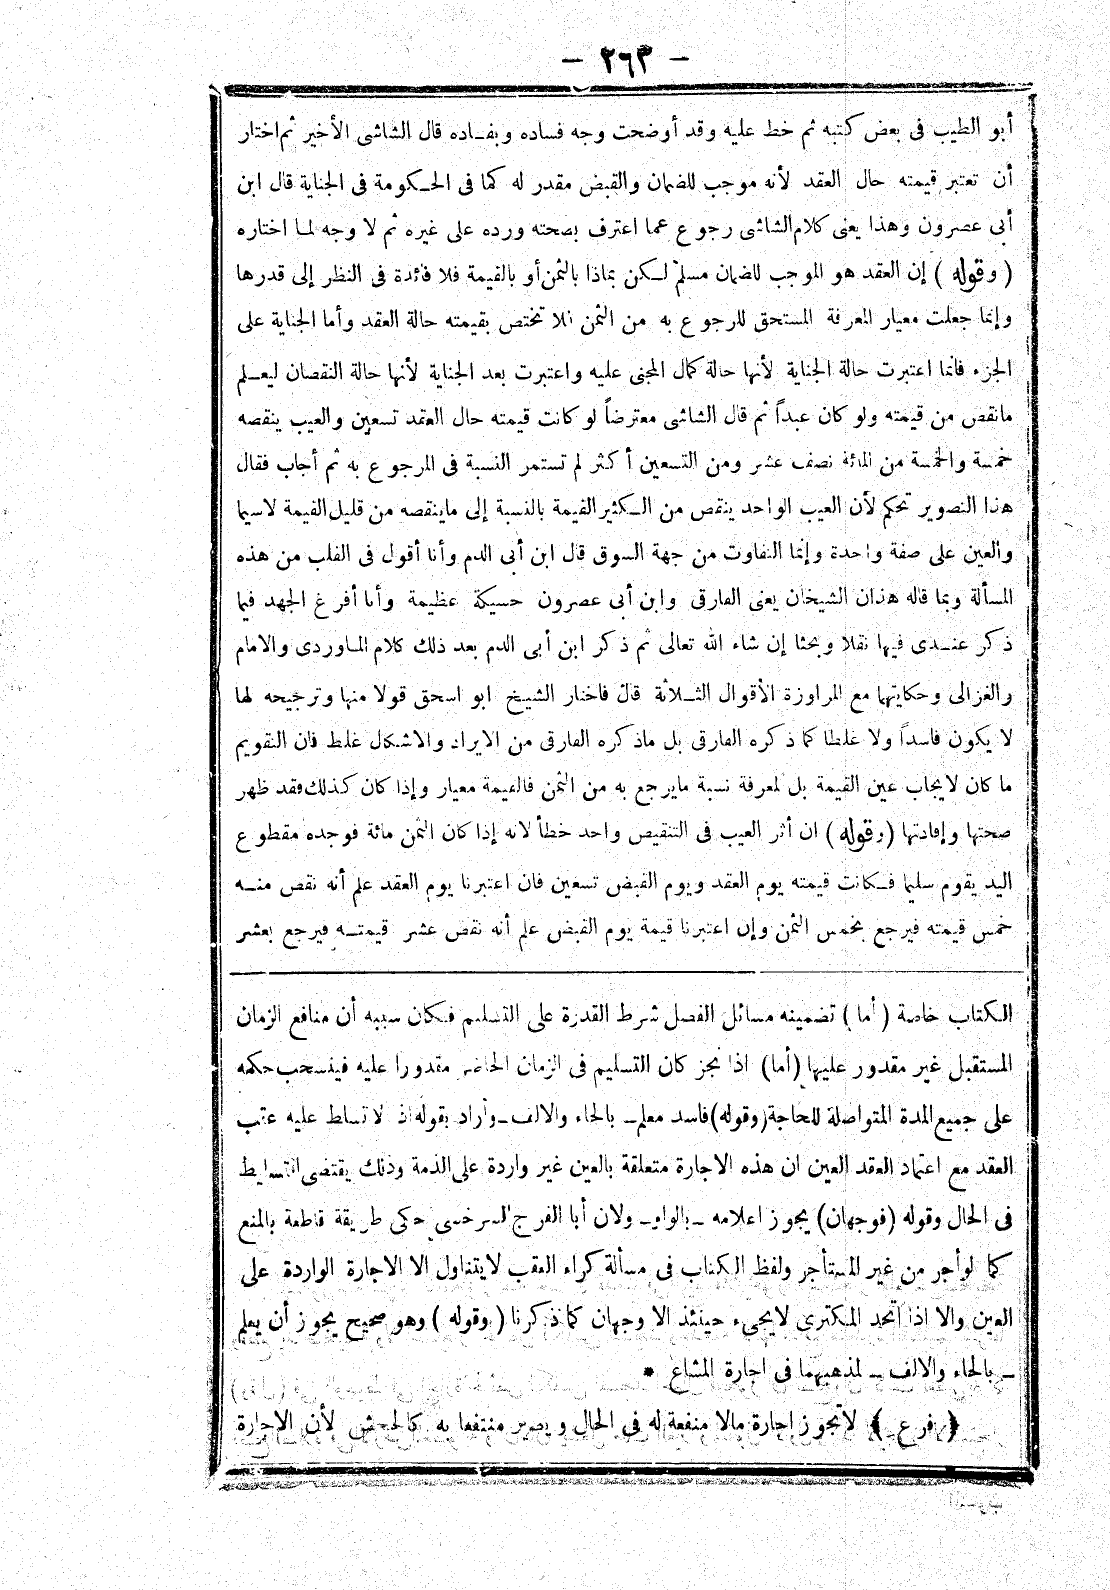 - ٢٦٣ -
أبو الطيب فى بعض كتبه ثم خط عليه وقد أوضحت وجه فساده وبفـاده قال الشاشى الأخير ثم اختار
أن تعتبر قيمته حال العقد لأنه موجب للضمان والقبض مقدر له كما فى الحـكومة فى الجناية قال ابن
أبى عصرون وهذا يعنى كلام الشاشى رجوع عما اعترف بصحته ورده على غيره ثم لا وجه لمـا اختاره
( وقوله ) إن العقد هو الموجب للضمان مسلم لـكن بماذا بالثمن أو بالقيمة فلا فائدة فى النظر إلى قدرها
وإنما جعلت معيار المعرفة المستحق للرجوع به من الثمن فلا تختص بقيمته حالة العقد وأما الجناية على
الجزء فانما اعتبرت حالة الجناية لأنها حالة كمال المجنى عليه واعتبرت بعد الجناية لأنها حالة النقصان ليعـلم
مانقص من قيمته ولو كان عبداً ثم قال الشاشى معترضاً لو كانت قيمته حال العقد تسعين والعيب ينقصه
خمسة والخمسة من المائة نصف عشر ومن التسعين أكثر لم تستمر النسبة فى المرجوع به ثم أجاب فقال
هذا التصوير تحكم لأن العيب الواحد ينقص من الـكثير القيمة بالنسبة إلى ماينقصه من قليل القيمة لاسيما
والعين على صفة واحدة وإنما التفاوت من جهة السوق قال ابن أبى الدم وأنا أقول فى القلب من هذه
المسألة وبما قاله هذان الشيخان يعنى الفارقى وابن أبى عصرون حسيكة عظيمة وأنا أفرغ الجهد فيما
ذكر عنـدى فيها نقلا وبحثا إن شاء الله تعالى ثم ذكر ابن أبى الدم بعد ذلك كلام المـاوردى والامام
والغزالى وحكايتهما مع المراوزة الأقوال الثـلاثة قال فاختار الشيخ ابو اسحق قولا منها وترجيحه لها
لا يكون فاسداً ولا غلطا كما ذكره الفارقى بل ماذكره الفارقى من الايراد والاشكال غلط فان التقويم
ما كان لايجاب عين القيمة بل لمعرفة نسبة مايرجع به من الثمن فالقيمة معيار وإذا كان كـذلك فقد ظهر
صحتها وإفادتها ( وقوله ) ان أثر العيب فى التنقيص واحد خطأ لانه إذا كان الثمن مائة فوجده مقطوع
اليد يقوم سليما فـكانت قيمته يوم العقد ويوم القبض تسعين فان اعتبرنا يوم العقد علم أنه نقص منـه
خمس قيمته فيرجع بخمس الثمن وإن اعتبرنا قيمة يوم القبض علم أنه نقص عشر قيمتـه فيرجع بعشر
الـكتاب خاصة ( أما ) تضمينه مسائل الفصل شرط القدرة على التسليم فـكان سببه أن منافع الزمان
المستقبل غير مقدور عليها (أما) اذا نجز كان التسليم فى الزمان الحاضر مقدورا عليه فينسحب حكمه
على جميع المدة المتواصلة للحاجة (وقوله) فاسد معلم ـ بالحاء والالف ـ وأراد بقوله اذ لا تسلط عليه عقب
العقد مع اعتماد العقد العين ان هذه الاجارة متعلقة بالعين غير واردة على الذمة وذلك يقتضى التسليط
فى الحال وقوله (فوجهان) يجوز اعلامه ـ بالواو ـ ولان أبا الفرج السرخسى حكى طريقة قاطعة بالمنع
كما لو أجر من غير المستأجر ولفظ الـكتاب فى مسألة كراء العقب لا يتناول الا الاجارة الواردة على
العين والا اذا اتحد المكترى لايجىء حينئذ الا وجهان كما ذكرنا ( وقوله ) وهو صحيح يجوز أن يعلم
ـ بالحاء والالف ـ لمذهبيهما فى اجارة المشاع *
﴿ فرع ﴾ لا تجوز إجارة مالا منفعة له فى الحال ويصير منتفعا به كالجحش لأن الاجارة